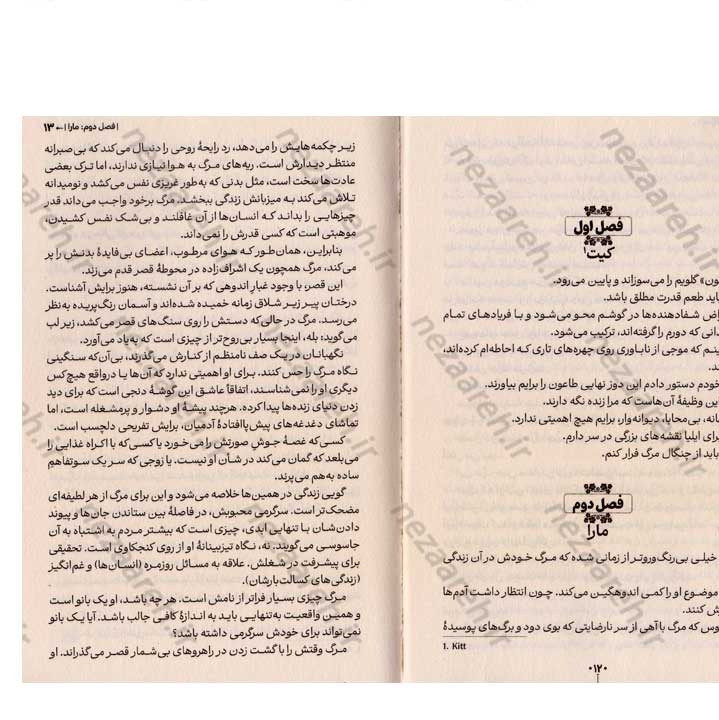 فصل اول
کیت۱
ون» گلویم را می‌سوزاند و پایین می‌رود.
باید طعم قدرت مطلق باشد.
شفادهنده‌ها در گوشم محو می‌شود و با فریادهای تمام
دانی که دورم را گرفته‌اند، ترکیب می‌شود.
که موجی از ناباوری روی چهره‌های تاری که احاطه‌ام کرده‌اند،
ند.
خودم دستور دادم این دوز نهایی طاعون را برایم بیاورند.
این وظیفهٔ آن‌هاست که مرا زنده نگه دارند.
بی‌محابا، دیوانه‌وار، برایم هیچ اهمیتی ندارد.
برای ایلیا نقشه‌های بزرگی در سر دارم.
باید از چنگال مرگ فرار کنم.
فصل دوم
مارا
خیلی بی‌رنگ‌وروتر از زمانی شده که مرگ خودش در آن زندگی
موضوع او را کمی اندوهگین می‌کند. چون انتظار داشت آدم‌ها
ش کنند.
وس که مرگ با آهی از سر نارضایتی که بوی دود و برگ‌های پوسیدهٔ
1. Kitt
۰۱۲۰
| فصل دوم: مارا | ← ۱۳
زیر چکمه‌هایش را می‌دهد، رد رایحهٔ روحی را دنبال می‌کند که بی‌صبرانه
منتظر دیدارش است. ریه‌های مرگ به هوا نیازی ندارند، اما ترک بعضی
عادت‌ها سخت است، مثل بدنی که به‌طور غریزی نفس می‌کشد و نومیدانه
تلاش می‌کند به میزبانش زندگی ببخشد. مرگ برخود واجب می‌داند قدر
چیزهایی را بداند که انسان‌ها از آن غافلند و بی‌شک نفس کشیدن،
موهبتی است که کسی قدرش را نمی‌داند.
بنابراین، همان‌طور که هوای مرطوب، اعضای بی‌فایدهٔ بدنش را پر
می‌کند، مرگ همچون یک اشراف‌زاده در محوطهٔ قصر قدم می‌زند.
این قصر، با وجود غبارِ اندوهی که بر آن نشسته، هنوز برایش آشناست.
درختان پیر زیر شلاق زمانه خمیده شده‌اند و آسمان رنگ‌پریده به‌نظر
می‌رسد. مرگ در حالی‌که دستش را روی سنگ‌های قصر می‌کشد، زیر لب
می‌گوید: بله، اینجا بسیار بی‌روح‌تر از چیزی است که به‌یاد می‌آورد.
نگهبانان در یک صف نامنظم از کنارش می‌گذرند، بی‌آن‌که سنگینی
نگاه مرگ را حس کنند. برای او اهمیتی ندارد که آن‌ها یا درواقع هیچ‌کس
دیگری او را نمی‌شناسند، اتفاقاً عاشق این گوشهٔ دنجی است که برای دید
زدن دنیای زنده‌ها پیدا کرده. هرچند پیشهٔ او دشوار و پرمشغله است، اما
تماشای دغدغه‌های پیش‌پاافتادهٔ آدمیان، برایش تفریحی دلچسب است.
کسی که غصهٔ جوشِ صورتش را می‌خورد یا کسی که با اکراه غذایی را
می‌بلعد که گمان می‌کند در شأن او نیست. یا زوجی که سر یک سوتفاهم
ساده به‌هم می‌پرند.
گویی زندگی در همین‌ها خلاصه می‌شود و این برای مرگ از هر لطیفه‌ای
مضحک‌تر است. سرگرمی محبوبش، در فاصلهٔ بین ستاندن جان‌ها و پیوند
دادن‌شان با تنهایی ابدی، چیزی است که بیشتر مردم به اشتباه به آن
جاسوسی می‌گویند. نه، نگاه تیزبینانهٔ او از روی کنجکاوی است. تحقیقی
برای پیشرفت در شغلش. علاقه به مسائل روزمره (انسان‌ها) و غم‌انگیز
(زندگی‌های کسالت‌بارشان).
مرگ چیزی بسیار فراتر از نامش است. هر چه باشد، او یک بانو است
و همین واقعیت به‌تنهایی باید به اندازهٔ کافی جالب باشد. آیا یک بانو
نمی‌تواند برای خودش سرگرمی داشته باشد؟
مرگ وقتش را با گشت زدن در راهروهای بی‌شمار قصر می‌گذراند. او
nezaareh.ir